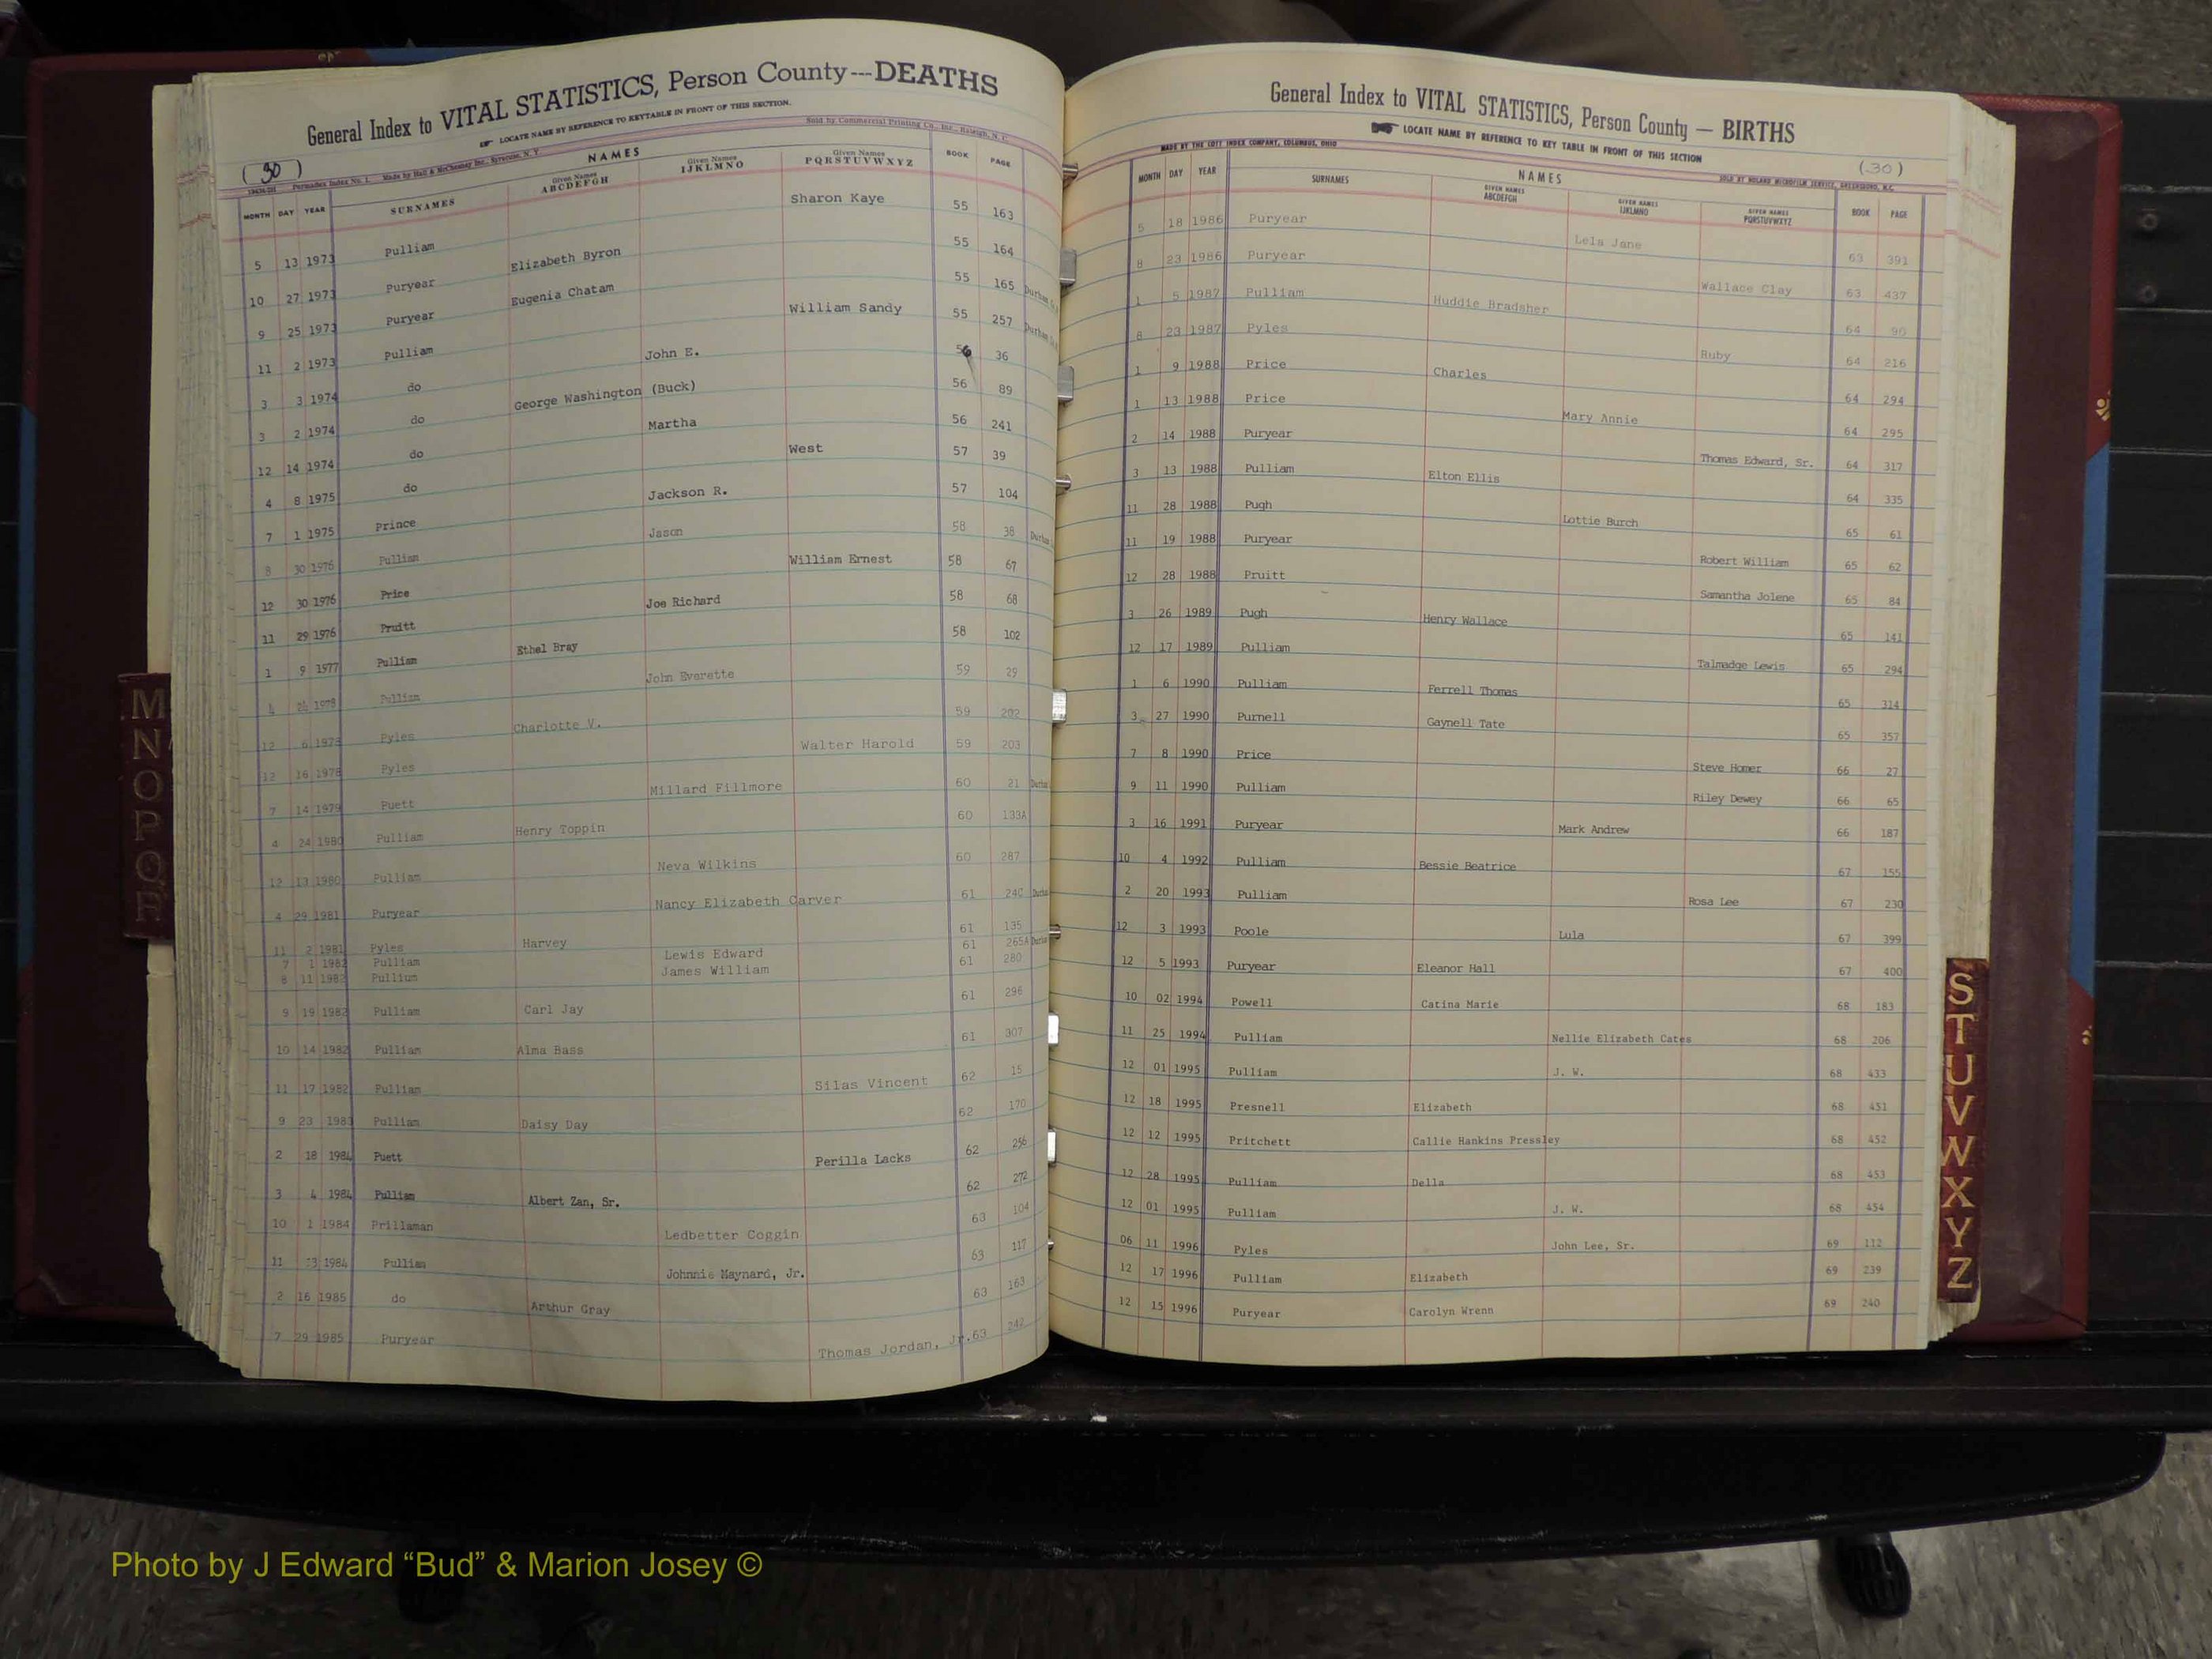 General Index to VITAL STATISTICS, Person County---DEATHS
LOCATE NAME BY REFERENCE TO KEYTABLE IN FRONT OF THIS SECTION.
Sold by Commercial Printing Co., Inc., Raleigh, N. C.
(30)
Permadex Index No. 1. Made by Hall & McChesney Inc., Syracuse, N. Y.
NAMES
MONTH DAY YEAR SURNAMES Given Names ABCDEFGH Given Names IJKLMNO Given Names PQRSTUVWXYZ BOOK PAGE
5 13 1973 Pulliam Sharon Kaye 55 163
10 27 1973 Puryear Elizabeth Byron 55 164
9 25 1973 Puryear Eugenia Chatam 55 165 Durham
11 2 1973 Pulliam William Sandy 55 257 Durham
3 3 1974 do John E. 56 36
3 2 1974 do George Washington (Buck) 56 89
12 14 1974 do Martha 56 241
4 8 1975 do West 57 39
7 1 1975 Prince Jackson R. 57 104
8 30 1976 Pulliam Jason 58 38 Durham
12 30 1976 Price William Ernest 58 67
11 29 1976 Pruitt Joe Richard 58 68
1 9 1977 Pulliam Ethel Bray 58 102
4 1978 Pulliam John Everette 59 29
12 6 1978 Pyles Charlotte V. 59 202
12 16 1978 Pyles Walter Harold 59 203
7 14 1979 Puett Millard Fillmore 60 21 Durham
4 24 1980 Pulliam Henry Toppin 60 133A
12 13 1980 Pulliam Neva Wilkins 60 287
4 29 1981 Puryear Nancy Elizabeth Carver 61 24C Durham
11 2 1981 Pyles Harvey 61 135
7 1 1982 Pulliam Lewis Edward 61 265A Durham
8 11 1982 Pullium James William 61 280
9 19 1982 Pulliam Carl Jay 61 296
10 14 1982 Pulliam Alma Bass 61 307
11 17 1982 Pulliam Silas Vincent 62 15
9 23 1983 Pulliam Daisy Day 62 170
2 18 1984 Puett Perilla Lacks 62 256
3 4 1984 Pulliam Albert Zan, Sr. 62 272
10 1 1984 Prillaman Ledbetter Coggin 63 104
11 1984 Pulliam Johnnie Maynard, Jr. 63 117
2 16 1985 do Arthur Gray 63 163
7 29 1985 Puryear Thomas Jordan, Jr. 63 242
General Index to VITAL STATISTICS, Person County — BIRTHS
LOCATE NAME BY REFERENCE TO KEY TABLE IN FRONT OF THIS SECTION
(30)
MADE BY THE COTT INDEX COMPANY, COLUMBUS, OHIO
SOLD BY NOLAND MICROFILM SERVICE, GREENSBORO, N.C.
NAMES
MONTH DAY YEAR SURNAMES GIVEN NAMES ABCDEFGH GIVEN NAMES IJKLMNO GIVEN NAMES PQRSTUVWXYZ BOOK PAGE
5 18 1986 Puryear Lela Jane 63 391
8 23 1986 Puryear Wallace Clay 63 437
1 5 1987 Pulliam Huddie Bradsher 64 90
8 23 1987 Pyles Ruby 64 216
1 9 1988 Price Charles 64 294
1 13 1988 Price Mary Annie 64 295
2 14 1988 Puryear Thomas Edward, Sr. 64 317
3 13 1988 Pulliam Elton Ellis 64 335
11 28 1988 Pugh Lottie Burch 65 61
11 19 1988 Puryear Robert William 65 62
12 28 1988 Pruitt Samantha Jolene 65 84
3 26 1989 Pugh Henry Wallace 65 141
12 17 1989 Pulliam Talmadge Lewis 65 294
1 6 1990 Pulliam Ferrell Thomas 65 314
3 27 1990 Purnell Gaynell Tate 65 357
7 8 1990 Price Steve Homer 66 27
9 11 1990 Pulliam Riley Dewey 66 65
3 16 1991 Puryear Mark Andrew 66 187
10 4 1992 Pulliam Bessie Beatrice 67 155
2 20 1993 Pulliam Rosa Lee 67 230
12 3 1993 Poole Lula 67 399
12 5 1993 Puryear Eleanor Hall 67 400
10 02 1994 Powell Catina Marie 68 183
11 25 1994 Pulliam Nellie Elizabeth Cates 68 206
12 01 1995 Pulliam J. W. 68 433
12 18 1995 Presnell Elizabeth 68 451
12 12 1995 Pritchett Callie Hankins Pressley 68 452
12 28 1995 Pulliam Della 68 453
12 01 1995 Pulliam J. W. 68 454
06 11 1996 Pyles John Lee, Sr. 69 112
12 17 1996 Pulliam Elizabeth 69 239
12 15 1996 Puryear Carolyn Wrenn 69 240
M
N
O
P
Q
R
S
T
U
V
W
X
Y
Z
Photo by J Edward “Bud” & Marion Josey ©